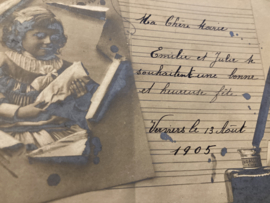 Ma Chère Marie
Emilie et Julie te
souhaitent une bonne
et heureuse fête
Verviers le 13 Août
1905.